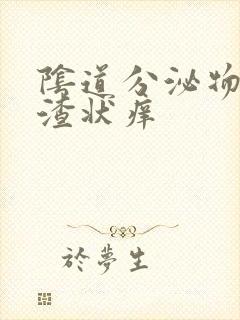 陰道分泌物
渣狀痒
於夢生